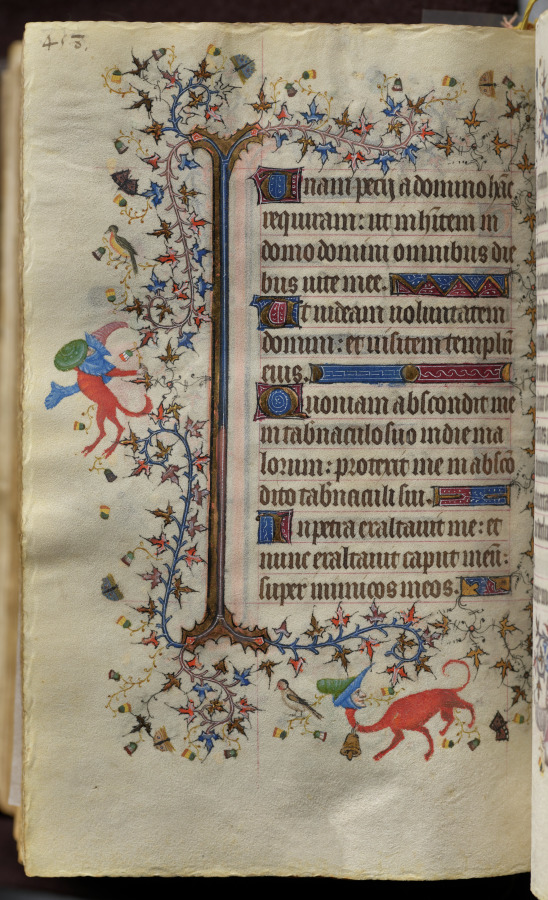 458.
Unam pecij a domino hāc
requiram: ut inhītem in
domo domini omnibus die
bus uite mee.
Ut uideam uoluntatem
domini: et uisitem templū
eius.
Quoniam abscondit me
in tab̄naculo suo in die ma
lorum: protexit me in absco
dito tab̄naculi sui.
In petra exaltauit me: et
nunc exaltauit caput meū:
super inimicos meos.